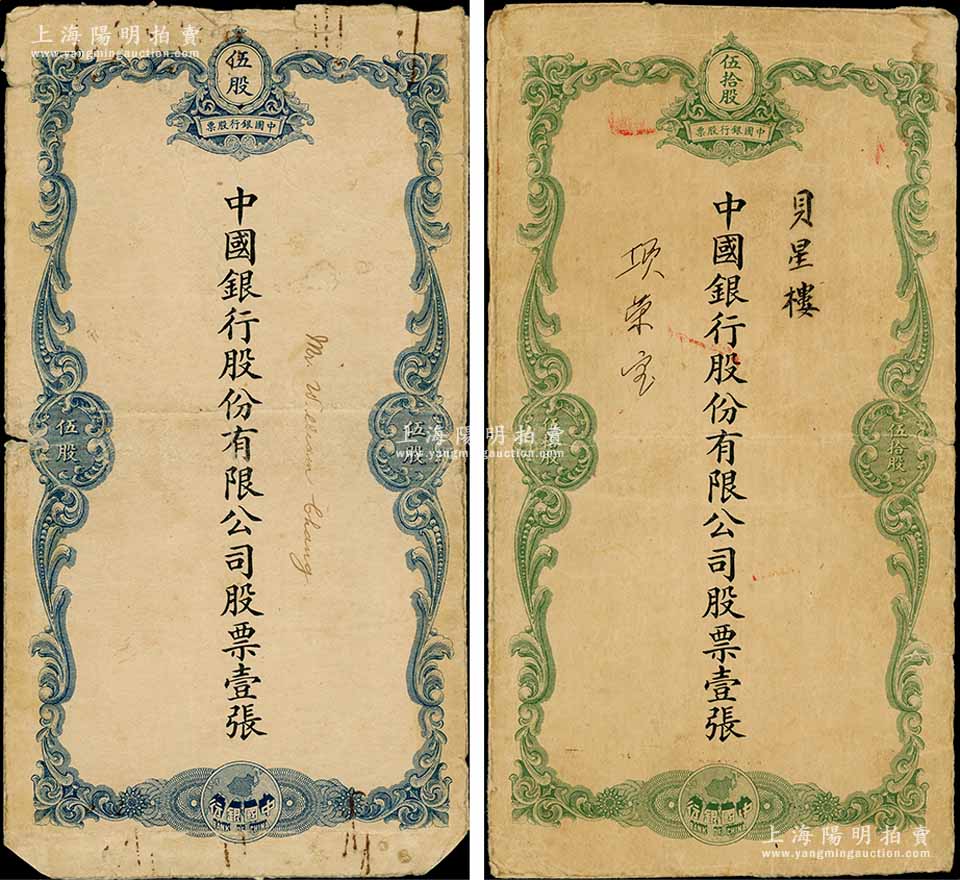 上海陽明拍賣
www.yangmingauction.com
伍股
中國銀行股票
中國銀行股份有限公司股票壹張
Mr. William Chang
伍股
伍股
中國銀行
BANK OF CHINA
伍拾股
中國銀行股票
貝星樓
中國銀行股份有限公司股票壹張
项荣宝
上海陽明拍賣
www.yangmingauction.com
伍拾股
中國銀行
BANK OF CHINA
上海陽明拍賣
www.yangmingauction.com